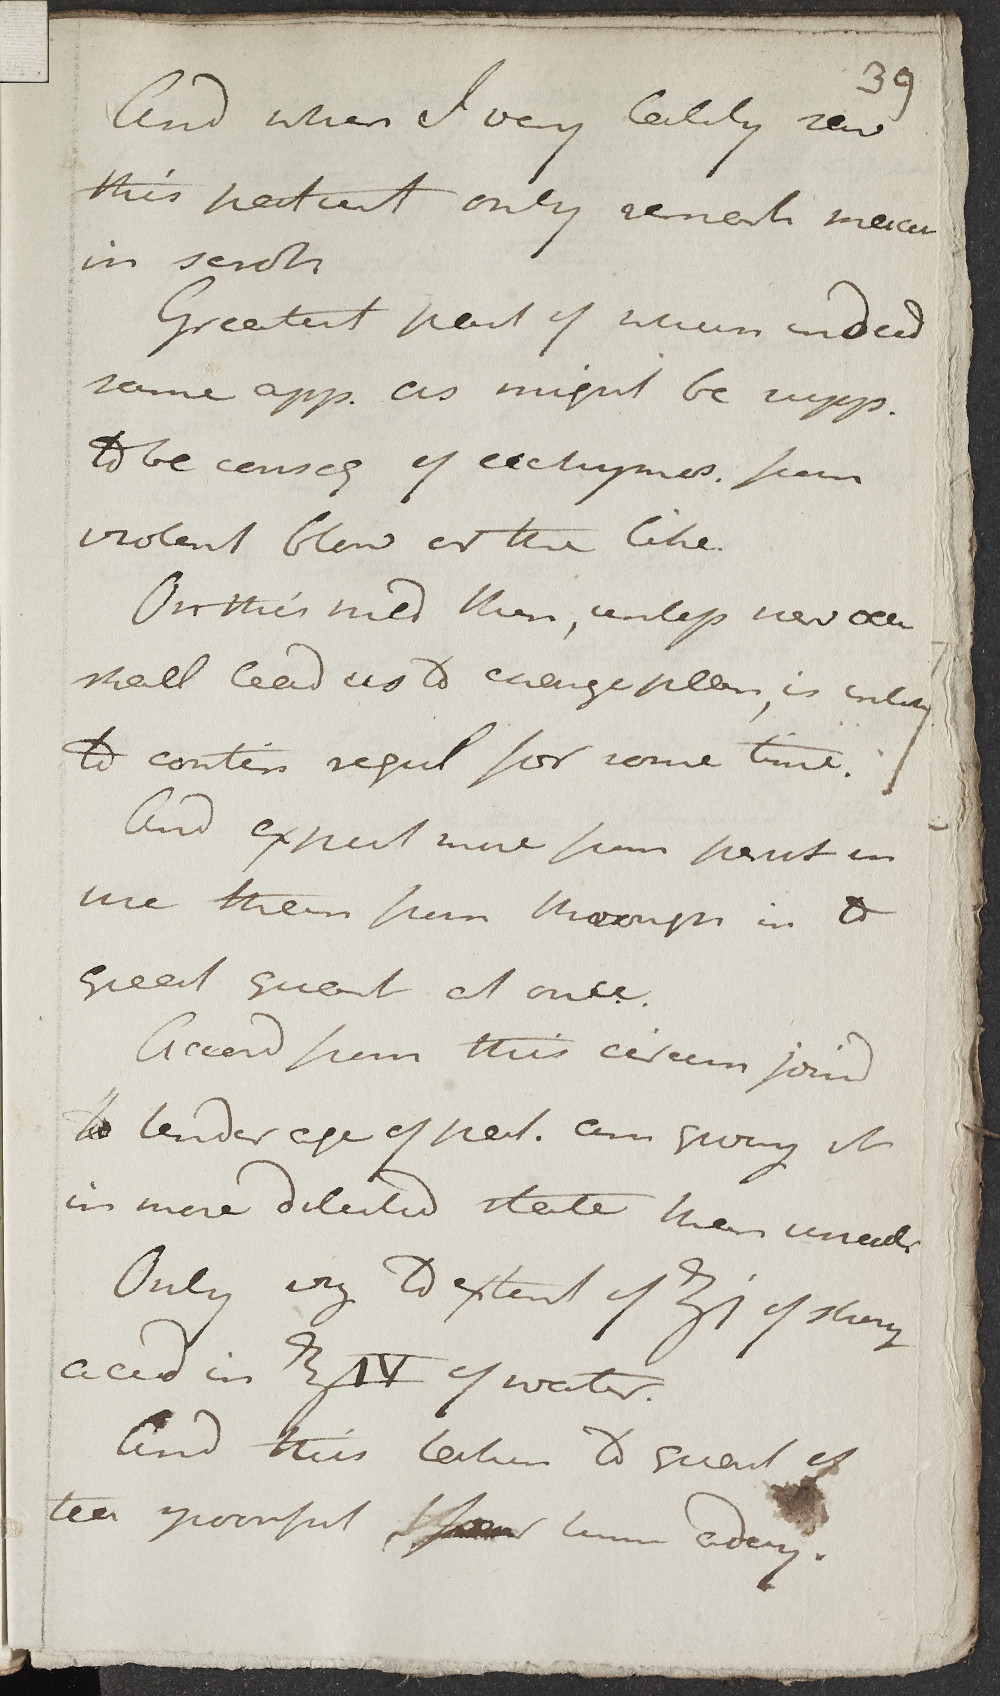 39
And when I very lately saw
this patient only remark mean
in scroti
Greatest part of whem indeed
same app. as might be supp.
to be conseq of ecchymos. from
violent blow or the like.
On this med then, unless new occu
shall lead us to change plan, is inten
to contin regul for some time.
And expect more from persist in
use than from throwgn in to
great quant at once.
Accord from this circum join'd
to tender age of pat. am giving it
in more diluted state than usual
Only viz to extent of ʒj of strong
acid in ʒIV of water.
And this taken to quant of
tea spoonful four times aday.